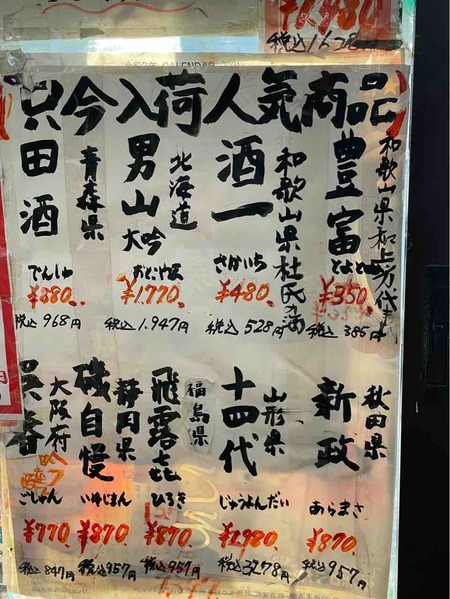 ¥1,980
税込1628
CALENDAR
只今入荷人気商品
豊富
和歌山県
とよとみ
¥350
税込 385円
酒一
和歌山県杜氏の酒
さかいち
¥480
税込 528円
男山
大吟
北海道
おとこやま
¥1,770
税込 1,947円
田酒
青森県
でんしゅ
¥880
税込 968円
新政
秋田県
あらまさ
¥870
税込 957円
十四代
山形県
じゅうよんだい
税込 3278円
飛露喜
福島県
ひろき
¥870
税込 957円
磯自慢
静岡県
いそじまん
¥870
税込 957円
呉春
大阪府
ごしゅん
¥770
税込 847円